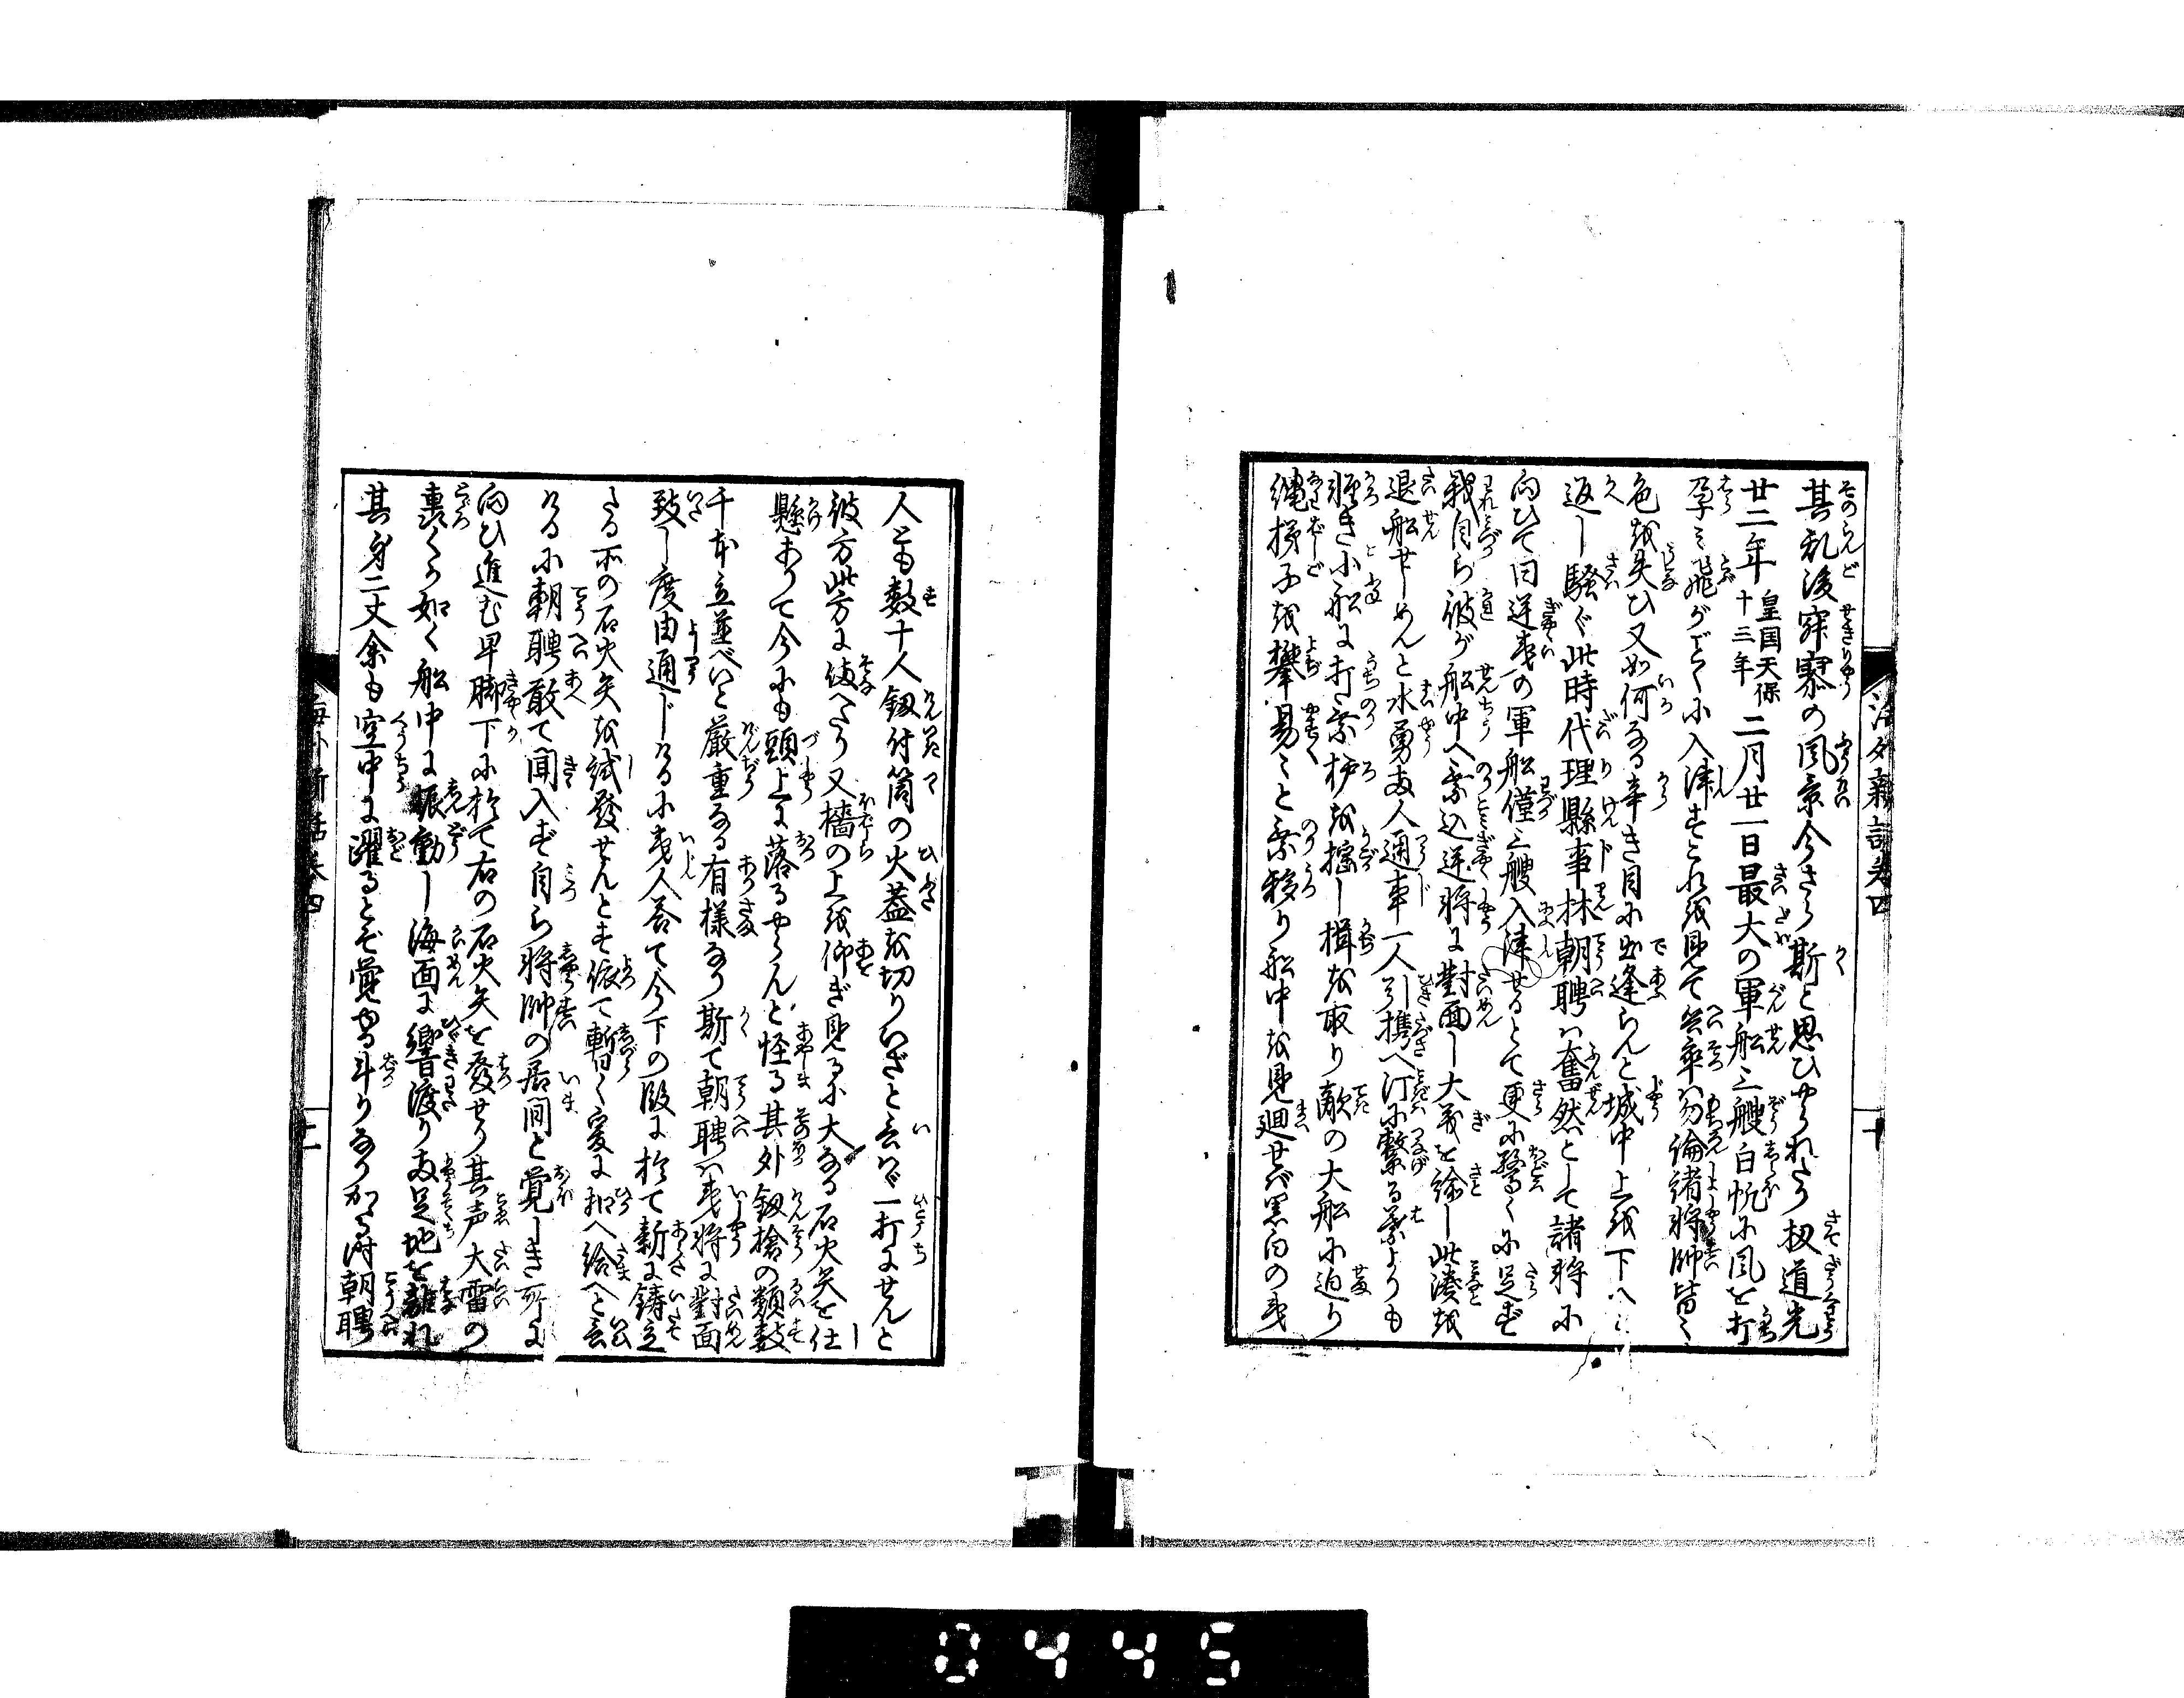 其乱後寂寥の風景今さら斯と思ひやられたり扨道光
廿二年皇国天保十三年二月廿一日最大の軍船三艘白帆に風を打
孕ミ飛がごとくに入津すこれを見て兵卒ハ勿論諸将帥皆〻
色を失ひ又如何なる辛き目に出逢らんと城中上を下へ〻
返し騒ぐ此時代理縣事林朝聘ハ奮然として諸将に
向ひて曰逆夷の軍船僅三艘入津せるとて更に驚くに足ず
我自ら彼が船中へ乗込逆将に對面し大義を諭し此湊を
退船せしめんと水勇両人通事一人引携へ汀に繋る葉よりも
軽き小船に打乗枦を搖し楫を取り敵の大船に迫り
縄梯子を攀易〻と乗移り船中を見廻せバ黒白の夷
人ども数十人劔付筒の火蓋を切りいざと云ハヾ一打にせんと
彼方此方に備へたり又檣の上を仰ぎ見るに大なる石火矢を仕
懸ありて今にも頭上に落るやらんと怪る其外劔鎗の類数
千本立並べいと厳重なる有様なり斯て朝聘ハ夷将に對面
致し度由通じけるに夷人答て今下の段に於て新に鋳立
たる所の石火矢を試發せんとす依て暫く爰に扣へ給へと云
けるに朝聘敢て聞入ず自ら将帥の居間と覚しき所に
向ひ進む早脚下に於て右の石火矢を發せり其声大雷の
轟くの如く船中に振動し海面に響渡り両足地を離れ
其身二丈余も空中に躍るとぞ覚ゆる斗りなりかゝる時朝聘
海外新話巻四
二
0445